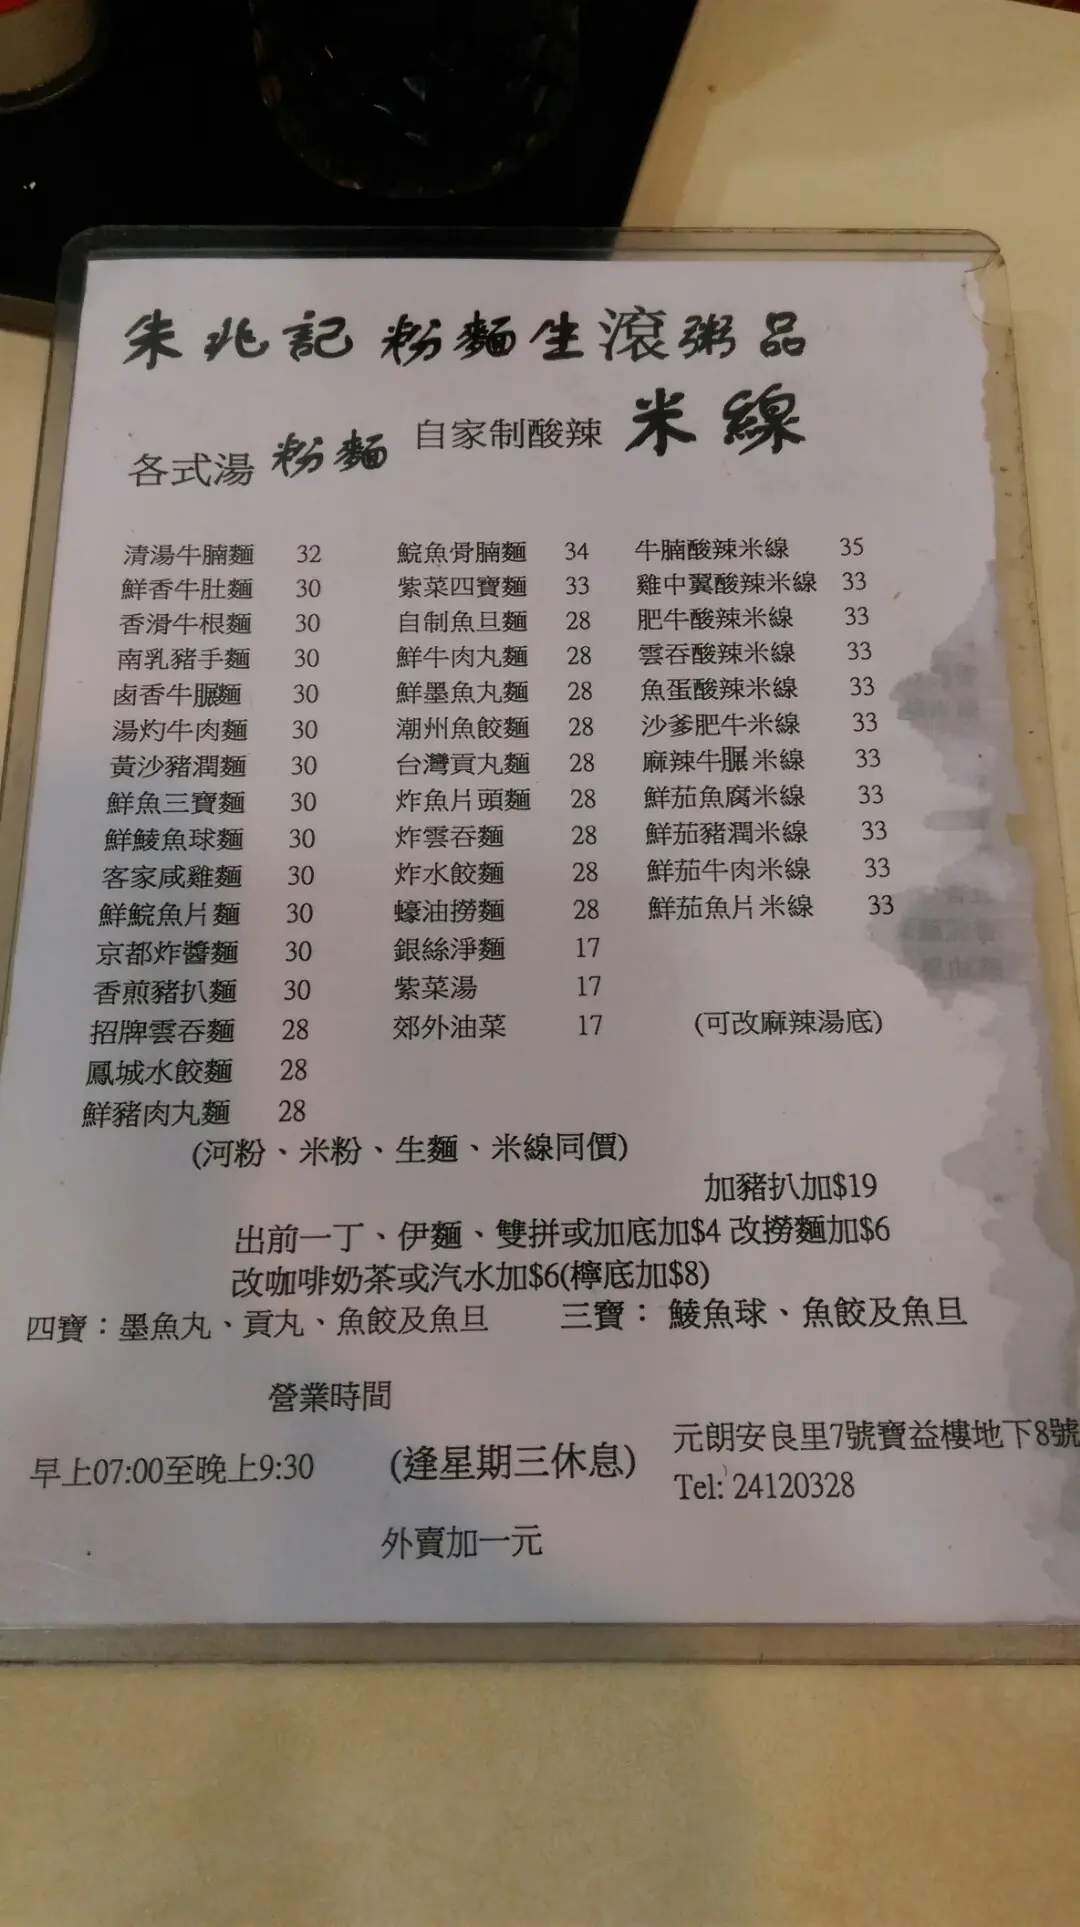 朱兆記 粉麵生滾粥品
各式湯 粉麵 自家制酸辣 米線
清湯牛腩麵 32 鯇魚骨腩麵 34 牛腩酸辣米線 35
鮮香牛肚麵 30 紫菜四寶麵 33 雞中翼酸辣米線 33
香滑牛根麵 30 自制魚旦麵 28 肥牛酸辣米線 33
南乳豬手麵 30 鮮牛肉丸麵 28 雲吞酸辣米線 33
鹵香牛𦟌麵 30 鮮墨魚丸麵 28 魚蛋酸辣米線 33
湯灼牛肉麵 30 潮州魚餃麵 28 沙爹肥牛米線 33
黃沙豬潤麵 30 台灣貢丸麵 28 麻辣牛𦟌米線 33
鮮魚三寶麵 30 炸魚片頭麵 28 鮮茄魚腐米線 33
鮮鯪魚球麵 30 炸雲吞麵 28 鮮茄豬潤米線 33
客家咸雞麵 30 炸水餃麵 28 鮮茄牛肉米線 33
鮮鯇魚片麵 30 蠔油撈麵 28 鮮茄魚片米線 33
京都炸醬麵 30 銀絲淨麵 17
香煎豬扒麵 30 紫菜湯 17
招牌雲吞麵 28 郊外油菜 17 (可改麻辣湯底)
鳳城水餃麵 28
鮮豬肉丸麵 28
(河粉、米粉、生麵、米線同價)
加豬扒加$19
出前一丁、伊麵、雙拼或加底加$4 改撈麵加$6
改咖啡奶茶或汽水加$6(檸底加$8)
四寶：墨魚丸、貢丸、魚餃及魚旦 三寶：鯪魚球、魚餃及魚旦
營業時間
早上07:00至晚上9:30 (逢星期三休息) 元朗安良里7號寶益樓地下8號
Tel: 24120328
外賣加一元